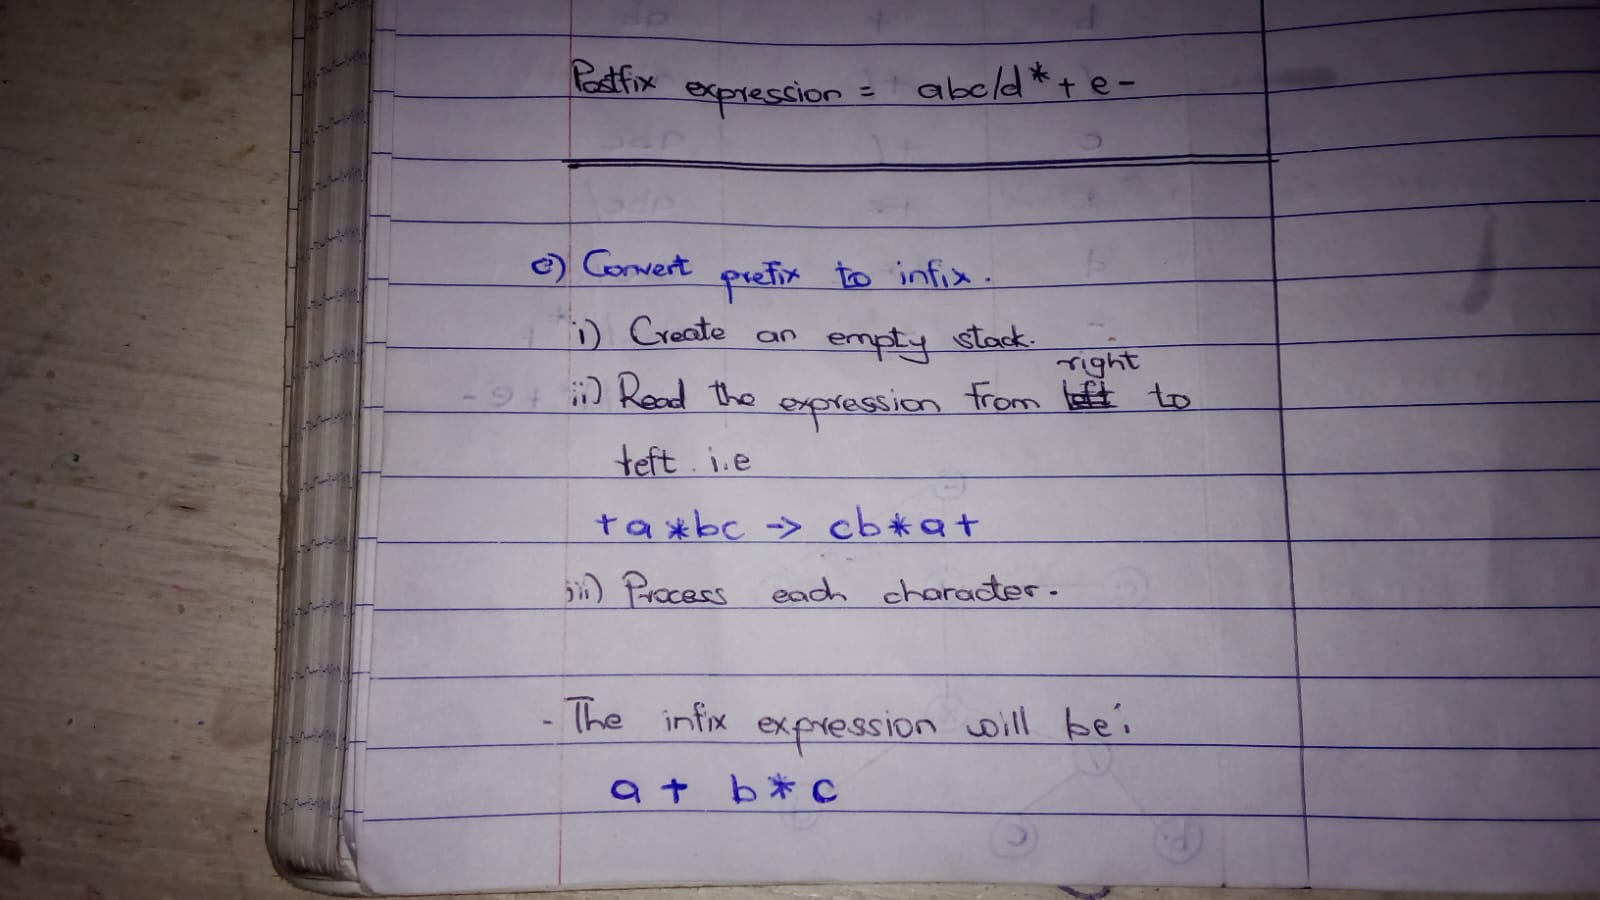 Postfix expression = abc/d*+e-
e) Convert prefix to infix.
i) Create an empty stack.
right
ii) Read the expression from left to
left. i.e
+a*bc -> cb*a+
iii) Process each character.
- The infix expression will be:
a + b*c